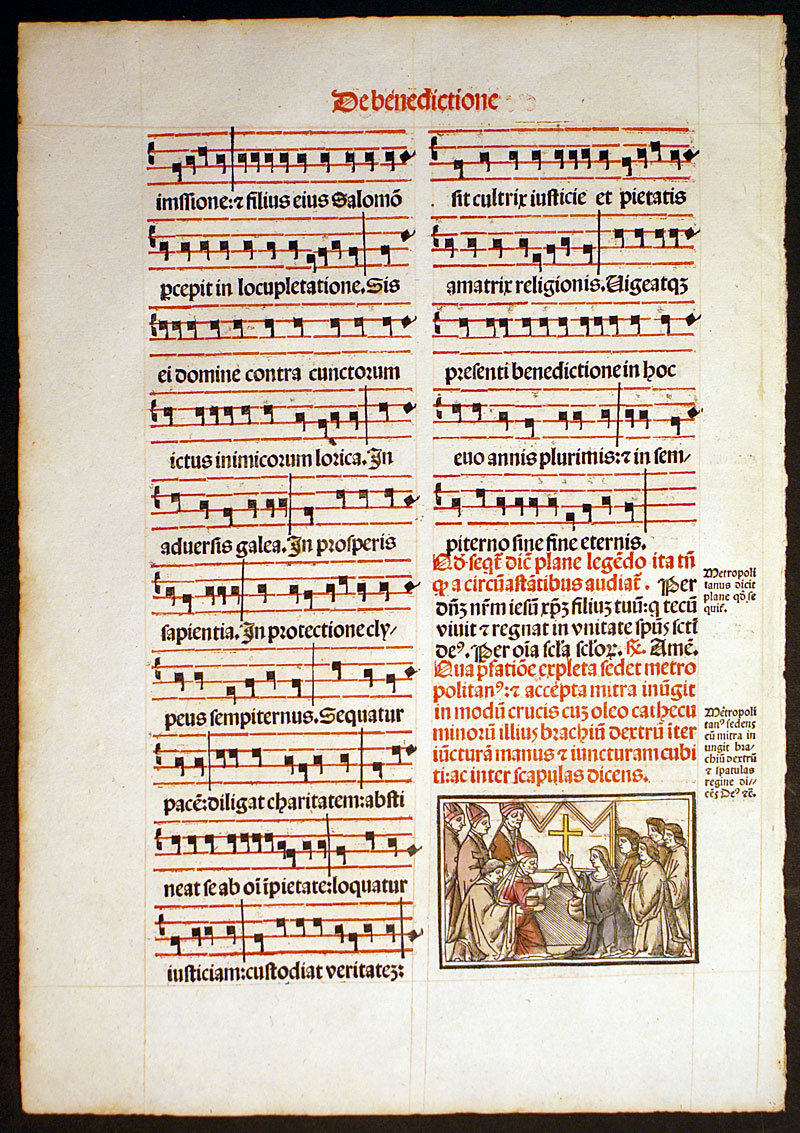 De benedictione
imssione:⁊ filius eius Salomõ
ꝑcepit in locupletatione. Sis
ei domine contra cunctorum
ictus inimicorum lorica. In
adversis galea. In prosperis
sapientia. In protectione cly/
peus sempiternus. Sequatur
pacẽ: diligat charitatem: absti
neat se ab oĩ ĩpietate: loquatur
iusticiam: custodiat veritatez:
sit cultrix iusticie et pietatis
amatrix religionis. Uigeatqꝫ
presenti benedictione in hoc
euo annis plurimis: ⁊ in sem/
piterno sine fine eternis.
Qd seqt̃ dic̃ plane legẽdo ita tñ
ꝙ a circũastãtibus audiat̃. Per
dñꝫ nr̃m iesũ xp̃ꝫ filiuꝫ tuũ: q tecũ
viuit ⁊ regnat in vnitate sp̃us sct̃i
deꝰ. Per oĩa scl̃a scl̃oꝝ. ℟. Amẽ.
Qua p̃fatiõe expleta sedet metro
politanꝰ: ⁊ accepta mitra inũgit
in modũ crucis cuꝫ oleo cathecu
minorũ illiuꝰ brachiũ dextrũ iter
iũcturã manus ⁊ iuncturam cubi
ti: ac inter scapulas dicens.
Metropoli
tanus dicit
plane qð se
quit̃.
Metropoli
tanꝰ sedens
cũ mitra in
ungit bra-
chiũ dextrũ
⁊ spatulas
regine di//
cẽs Deꝰ ⁊c̃.